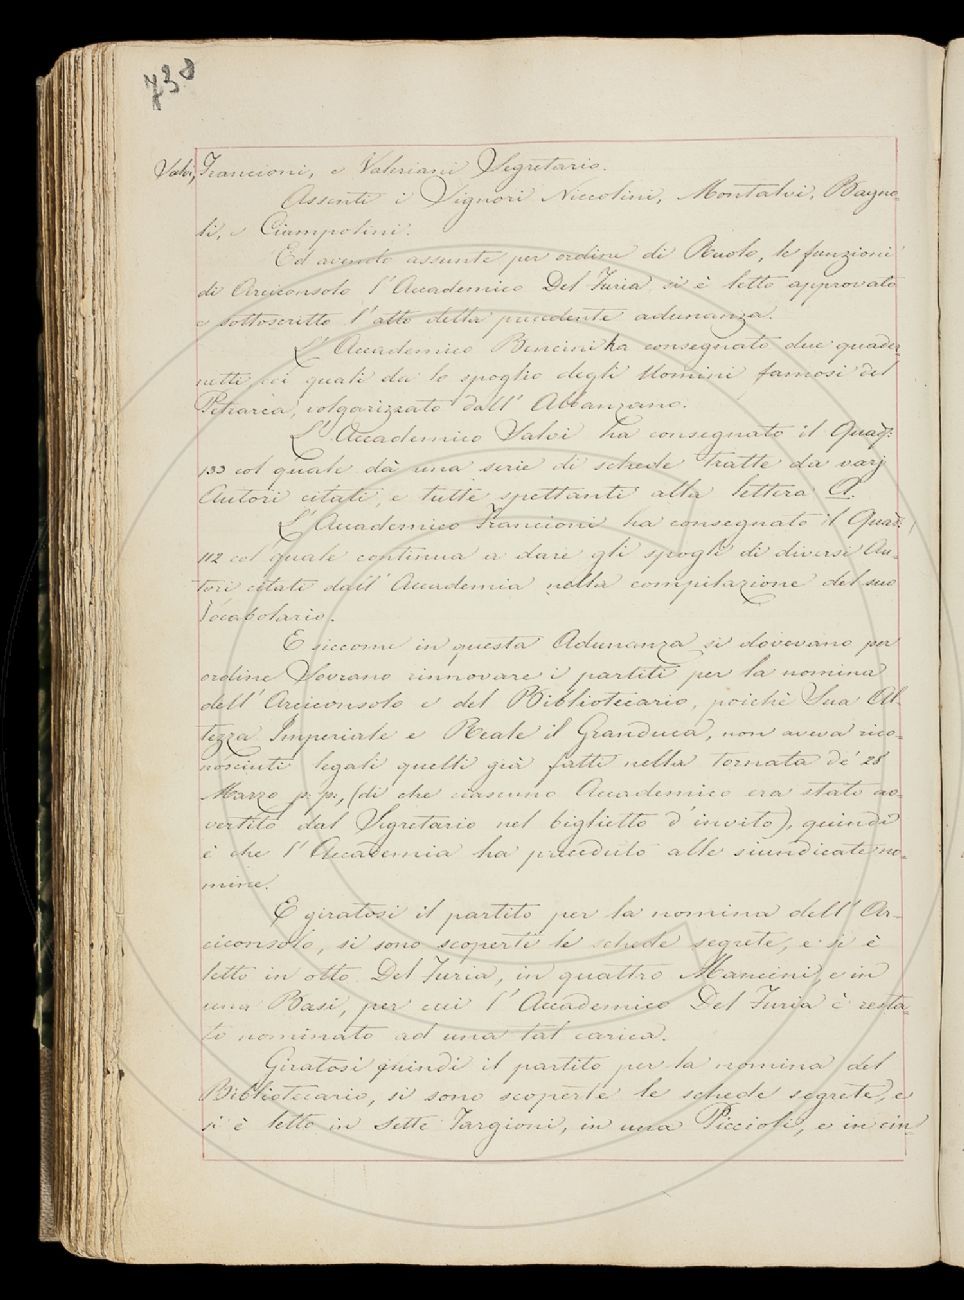 738
Salvi, Francioni, e Valeriani Segretario.
Assenti i Signori Niccolini, Montalvi, Bagno-
li, e Ciampolini.
Ed avendo assunte per ordine di Ruolo, le funzioni
di Arciconsolo l'Accademico Del Furia si è letto approvato
e sottoscritto l'atto della precedente adunanza.
L'Accademico Bencini ha consegnato due quader-
netti coi quali dà lo spoglio degli Uomini famosi del
Petrarca, volgarizzato dall' Albanzano.
L'Accademico Salvi ha consegnato il Quad:
133 col quale dà una serie di schede tratte da varj
Autori citati, e tutte spettanti alla lettera A.
L'Accademico Francioni ha consegnato il Quad:
112 col quale continua a dare gli spogli di diversi Au-
tori citati dall' Accademia nella compilazione del suo
Vocabolario.
E siccome in questa Adunanza si dovevano per
ordine Sovrano rinnovare i partiti per la nomina
dell' Arciconsolo e del Bibliotecario, poichè Sua Al-
tezza Imperiale e Reale il Granduca, non aveva rico-
nosciuti legali quelli già fatti nella tornata de' 28
Marzo p. p., (di che ciascuno Accademico era stato av-
vertito dal Segretario nel biglietto d'invito), quindi
è che l'Accademia ha preceduto alle siundicate no-
mine.
E giratosi il partito per la nomina dell' Ar-
ciconsolo, si sono scoperte le schede segrete, e si è
letto in otto Del Furia, in quattro Mancini, e in
una Basi, per cui l'Accademico Del Furia è resta-
to nominato ad una tal carica.
Giratosi quindi il partito per la nomina del
Bibliotecario, si sono scoperte le schede segrete, e
si è letto in sette Targioni, in una Piccioli, e in cin-